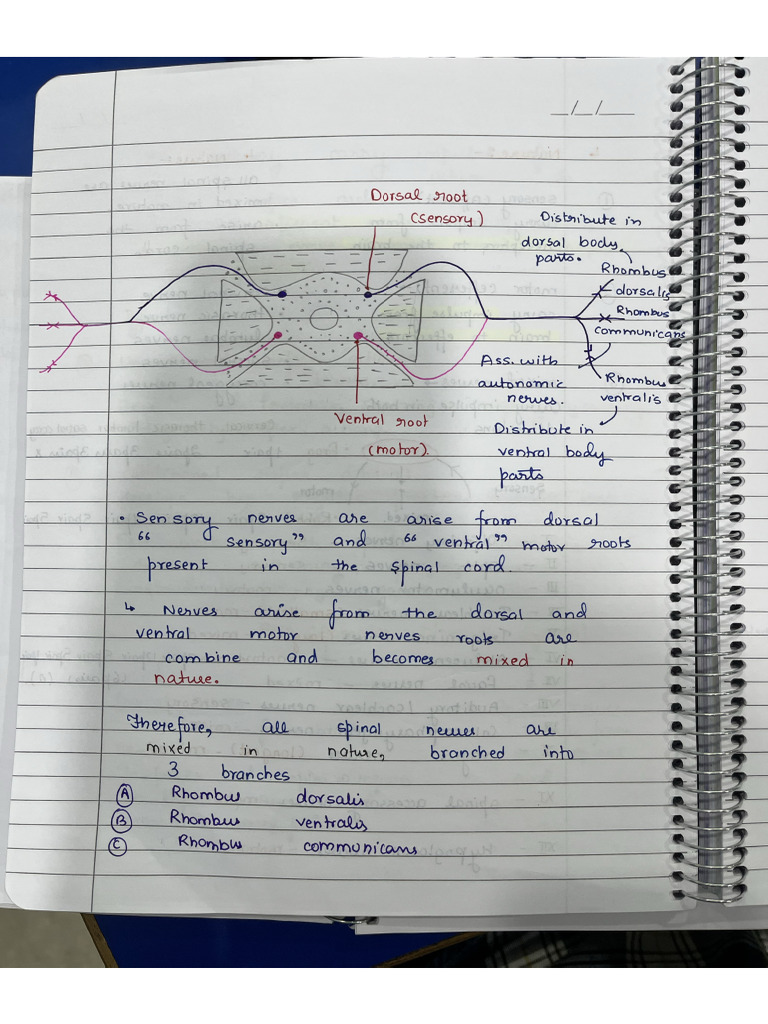 __/__/____
Dorsal root
(sensory)
Distribute in
dorsal body
parts.
Rhombus
dorsalis
Rhombus
communicans
Ass. with
autonomic
nerves.
Rhombus
ventralis
Ventral root
(motor).
Distribute in
ventral body
parts
• Sensory nerves are arise from dorsal
“ sensory” and “ ventral” motor roots
present in the spinal cord.
↳ Nerves arise from the dorsal and
ventral motor nerves roots are
combine and becomes mixed in
nature.
Therefore, all spinal nerves are
mixed in nature, branched into
3 branches
Ⓐ Rhombus dorsalis
Ⓑ Rhombus ventralis
Ⓒ Rhombus communicans